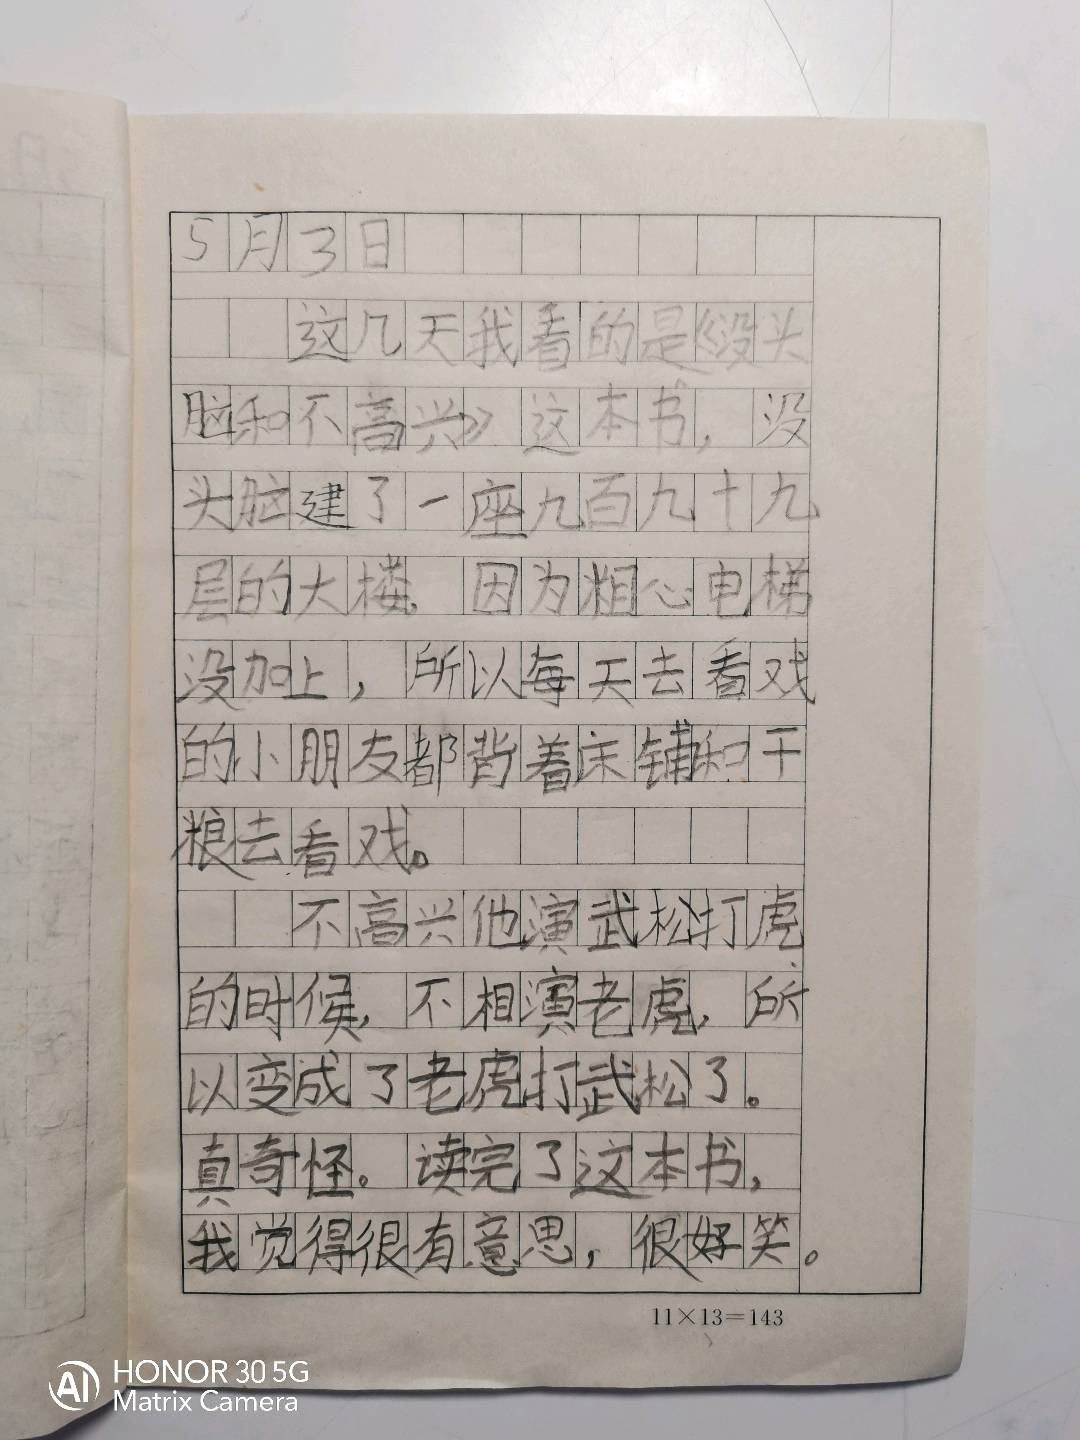 5月3日
这几天我看的是《没头
脑和不高兴》这本书，没
头脑建了一座九百九十九
层的大楼，因为粗心电梯
没加上，所以每天去看戏
的小朋友都背着床铺和干
粮去看戏。
不高兴他演武松打虎
的时候，不相演老虎，所
以变成了老虎打武松了。
真奇怪。读完了这本书，
我觉得很有意思，很好笑。
11×13=143
HONOR 30 5G
Matrix Camera